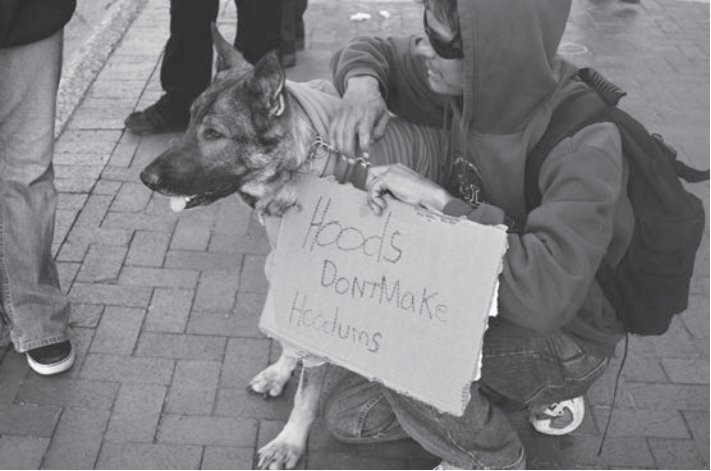 Hoods
DontMake
Hoodums